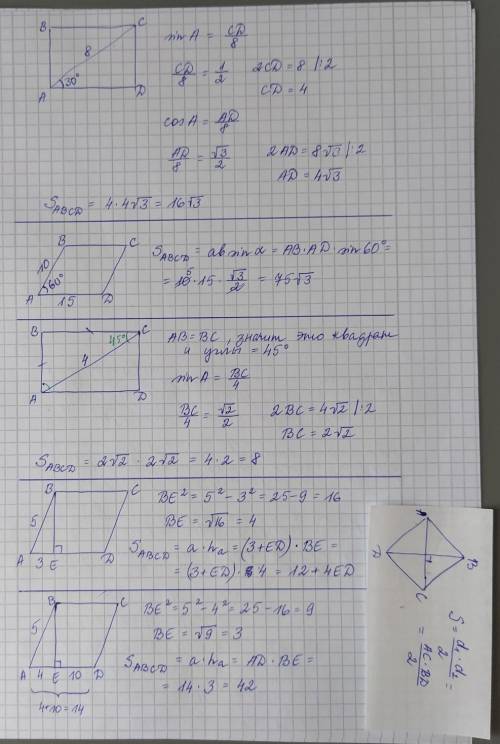 B C
8
30°
A D
sin A = CD/8
CD/8 = 1/2 2CD = 8 |:2
CD = 4
cos A = AD/8
AD/8 = √3/2 2AD = 8√3 |:2
AD = 4√3
S_ABCD = 4·4√3 = 16√3
B C
10
60°
A 15 D
S_ABCD = ab sin α = AB·AD·sin 60° =
= 10 5·15·√3/2 = 75√3
B C
45°
4
A D
AB = BC, значит это квадрат
и углы = 45°
sin A = BC/4
BC/4 = √2/2 2BC = 4√2 |:2
BC = 2√2
S_ABCD = 2√2 · 2√2 = 4·2 = 8
B C
5
A 3 E D
BE² = 5² - 3² = 25 - 9 = 16
BE = √16 = 4
S_ABCD = a·h_a = (3+ED)·BE =
= (3+ED)·4 = 12 + 4ED
B C
5
A 4 E 10 D
4+10=14
BE² = 5² - 4² = 25 - 16 = 9
BE = √9 = 3
S_ABCD = a·h_a = AD·BE =
= 14·3 = 42
A
D B
C
S = d₁·d₂/2 =
= AC·BD/2